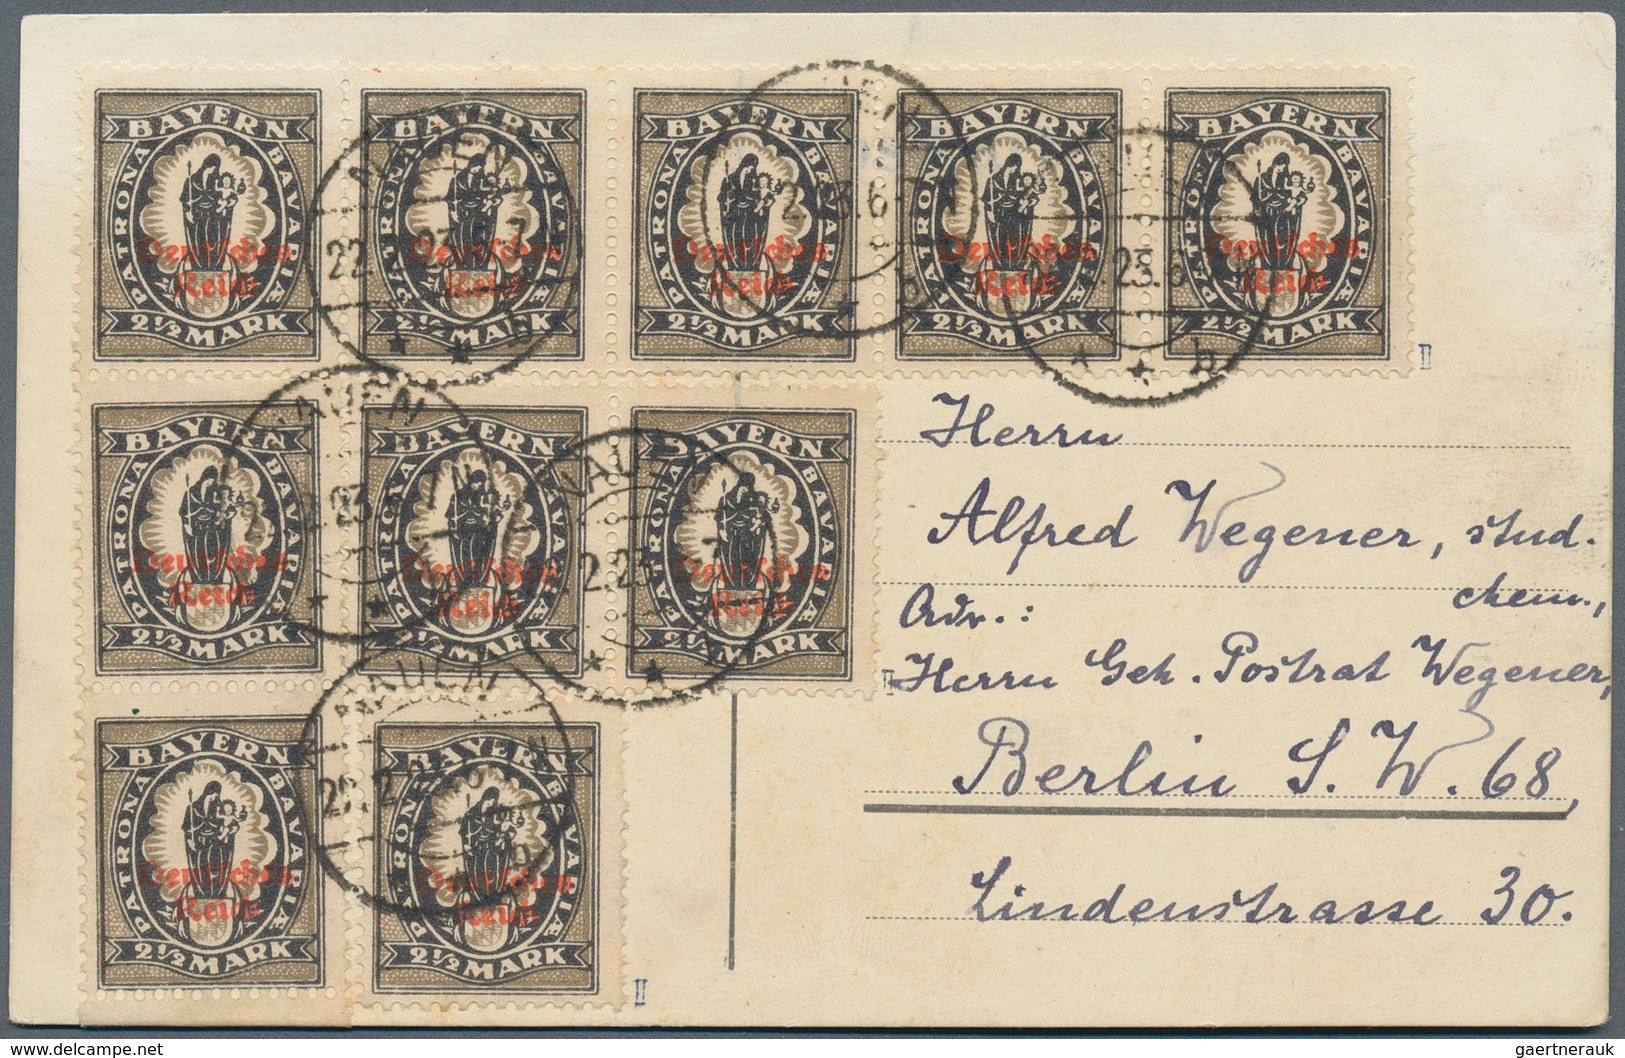 BAYERN BAYERN BAYERN BAYERN BAYERN
PATRONA BAVARIÆ PATRONA BAVARIÆ PATRONA BAVARIÆ PATRONA BAVARIÆ PATRONA BAVARIÆ
Deutsches Deutsches Deutsches Deutsches Deutsches
Reich Reich Reich Reich Reich
2½ MARK 2½ MARK 2½ MARK 2½ MARK 2½ MARK
NAUEN
b
II
BAYERN BAYERN BAYERN
PATRONA BAVARIÆ PATRONA BAVARIÆ PATRONA BAVARIÆ
Deutsches Deutsches Deutsches
Reich Reich Reich
2½ MARK 2½ MARK 2½ MARK
NAUEN
NAUEN
II
BAYERN BAYERN
PATRONA BAVARIÆ PATRONA BAVARIÆ
Deutsches Deutsches
Reich Reich
2½ MARK 2½ MARK
NAUEN
II
Herrn
Alfred Wegener, stud.
chem.,
Adr.:
Herrn Geh. Postrat Wegener,
Berlin S. W. 68,
Lindenstrasse 30.
gaertnerauk
www.delcampe.net